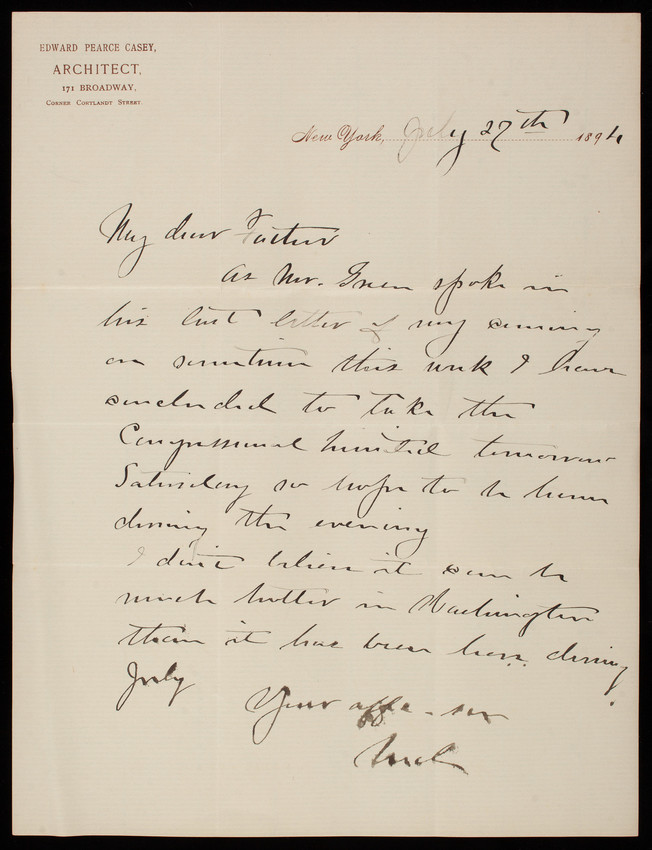 EDWARD PEARCE CASEY,
ARCHITECT,
171 BROADWAY,
CORNER CORTLANDT STREET.
New York, July 27th 1894
My dear Father
As Mr. Green spoke in
his last letter of my coming
on sometime this week I have
concluded to take the
Congressional limited tomorrow
Saturday so hope to be home
during the evening
I don't believe it can be
much hotter in Washington
than it has been here during
July.
Your affe - son